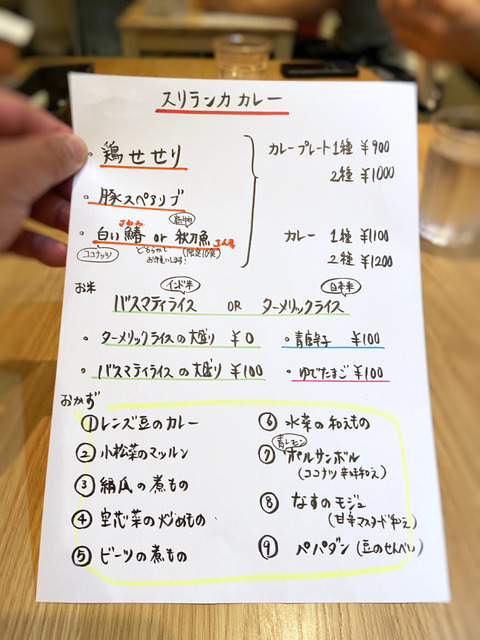 スリランカカレー
・鶏せせり
・豚スペアリブ
さわら
新物
・白い鰆 or 秋刀魚 さんま
ココナッツ
どちらかで
お伺いします!
(限定10食)
カレープレート 1種 ¥900
2種 ¥1000
カレー 1種 ¥1100
2種 ¥1200
お米
インド米
日本米
バスマティライス OR ターメリックライス
・ターメリックライスの大盛り ¥0
・バスマティライスの大盛り ¥100
・青唐辛子 ¥100
・ゆでたまご ¥100
おかず
①レンズ豆のカレー
②小松菜のマッルン
③絹瓜の煮もの
④空芯菜の炒めもの
⑤ビーツの煮もの
⑥水菜の和えもの
青レモン
⑦ポルサンボル
(ココナツ辛味和え)
⑧なすのモジュ
(甘辛マスタード和え)
⑨パパダン(豆のせんべい)